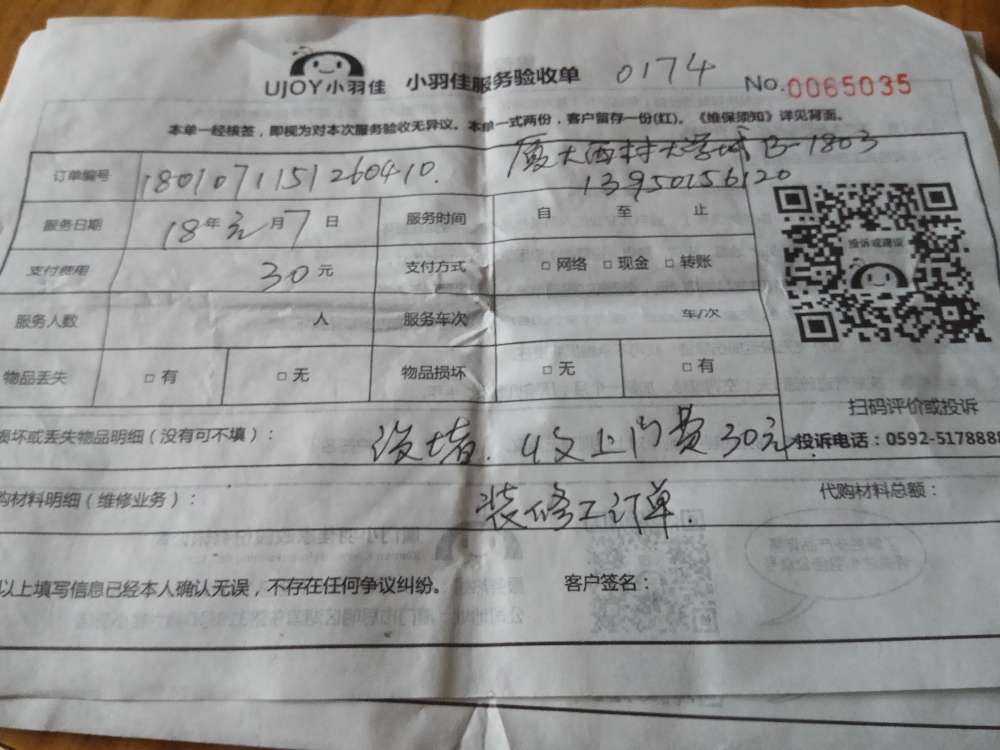 UJOY小羽佳 小羽佳服务验收单 0174 No.0065035
本单一经核签，即视为对本次服务验收无异议。本单一式两份，客户留存一份(红)。《维保须知》详见背面。
厦大西村大学城B-1803
订单编号 180107115126041­0.
13950156120
服务日期 18年元月7日 服务时间 自 至 止
投诉或建议
支付费用 30元 支付方式 □网络 □现金 □转账
服务人数 人 服务车次 车/次
物品丢失 □有 □无 物品损坏 □无 □有
扫码评价或投诉
损坏或丢失物品明细（没有可不填）： 没堵. 收上门费30元. 投诉电话：0592-5178888
购材料明细（维修业务）： 装修工订单. 代购材料总额：
以上填写信息已经本人确认无误，不存在任何争议纠纷。 客户签名：